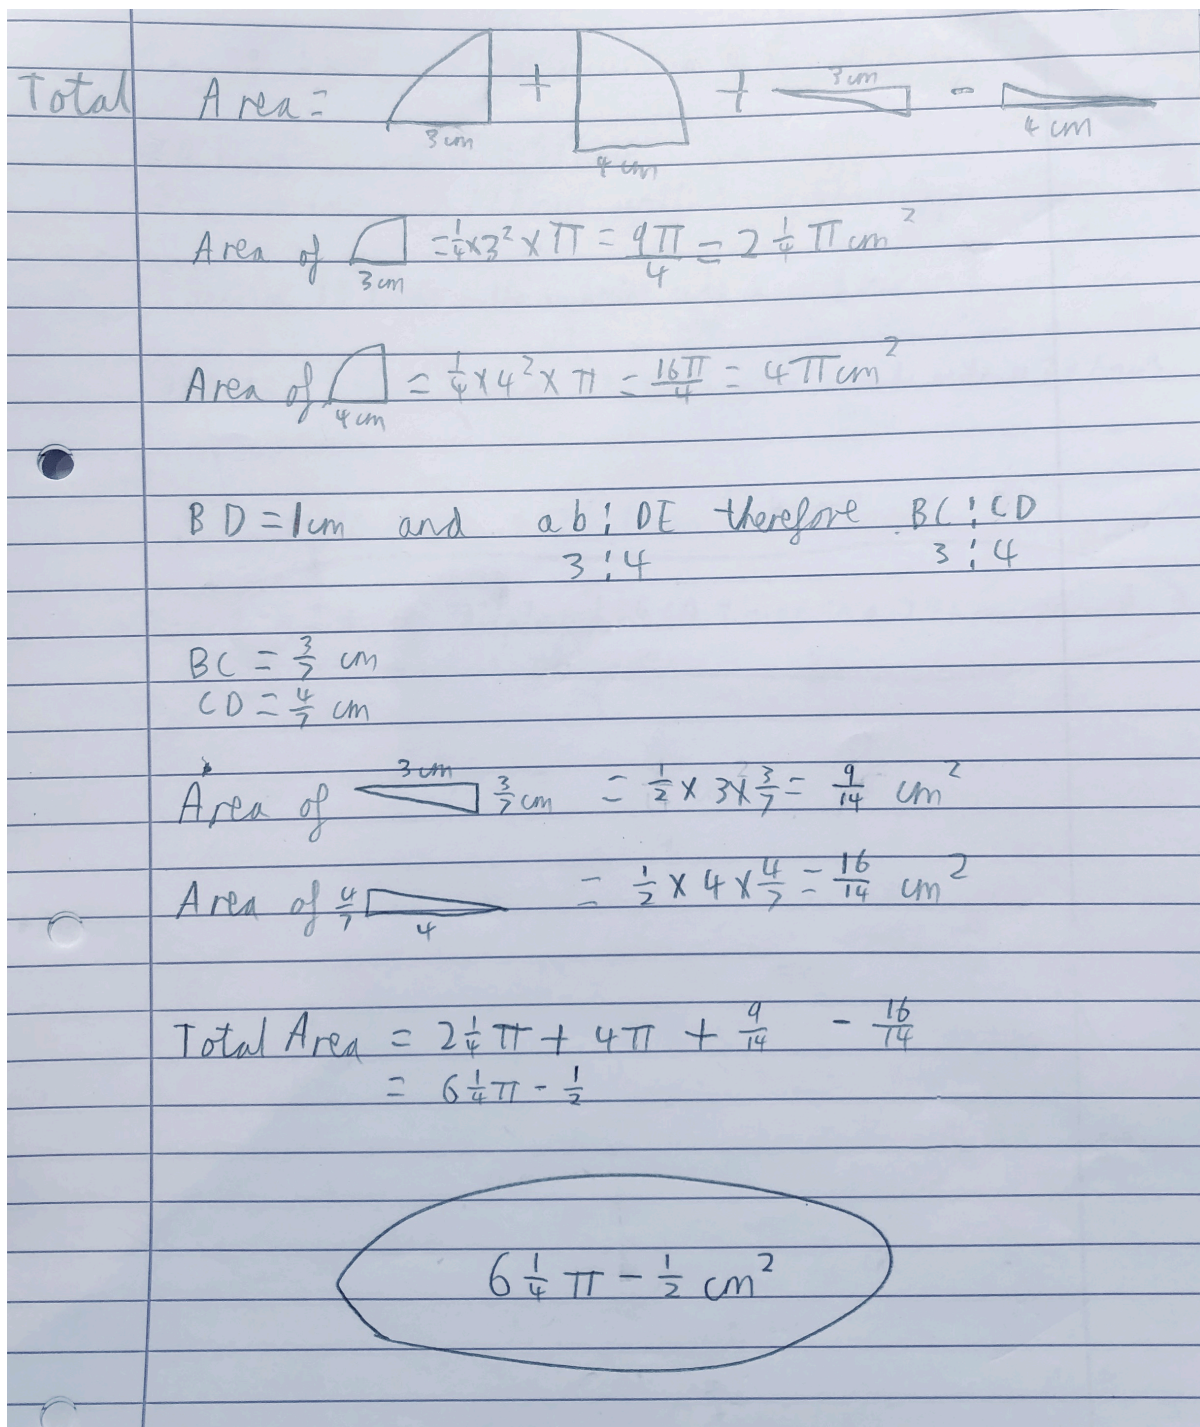 Total Area = + + 3cm -
3cm 4cm 4cm
Area of 3cm = 1/4 × 3² × π = 9π/4 = 2 1/4 π cm²
Area of 4cm = 1/4 × 4² × π = 16π/4 = 4π cm²
BD = 1cm and ab : DE therefore BC : CD
3 : 4 3 : 4
BC = 3/7 cm
CD = 4/7 cm
Area of 3cm 3/7 cm = 1/2 × 3 × 3/7 = 9/14 cm²
Area of 4/7 4 = 1/2 × 4 × 4/7 = 16/14 cm²
Total Area = 2 1/4 π + 4π + 9/14 - 16/14
= 6 1/4 π - 1/2
6 1/4 π - 1/2 cm²